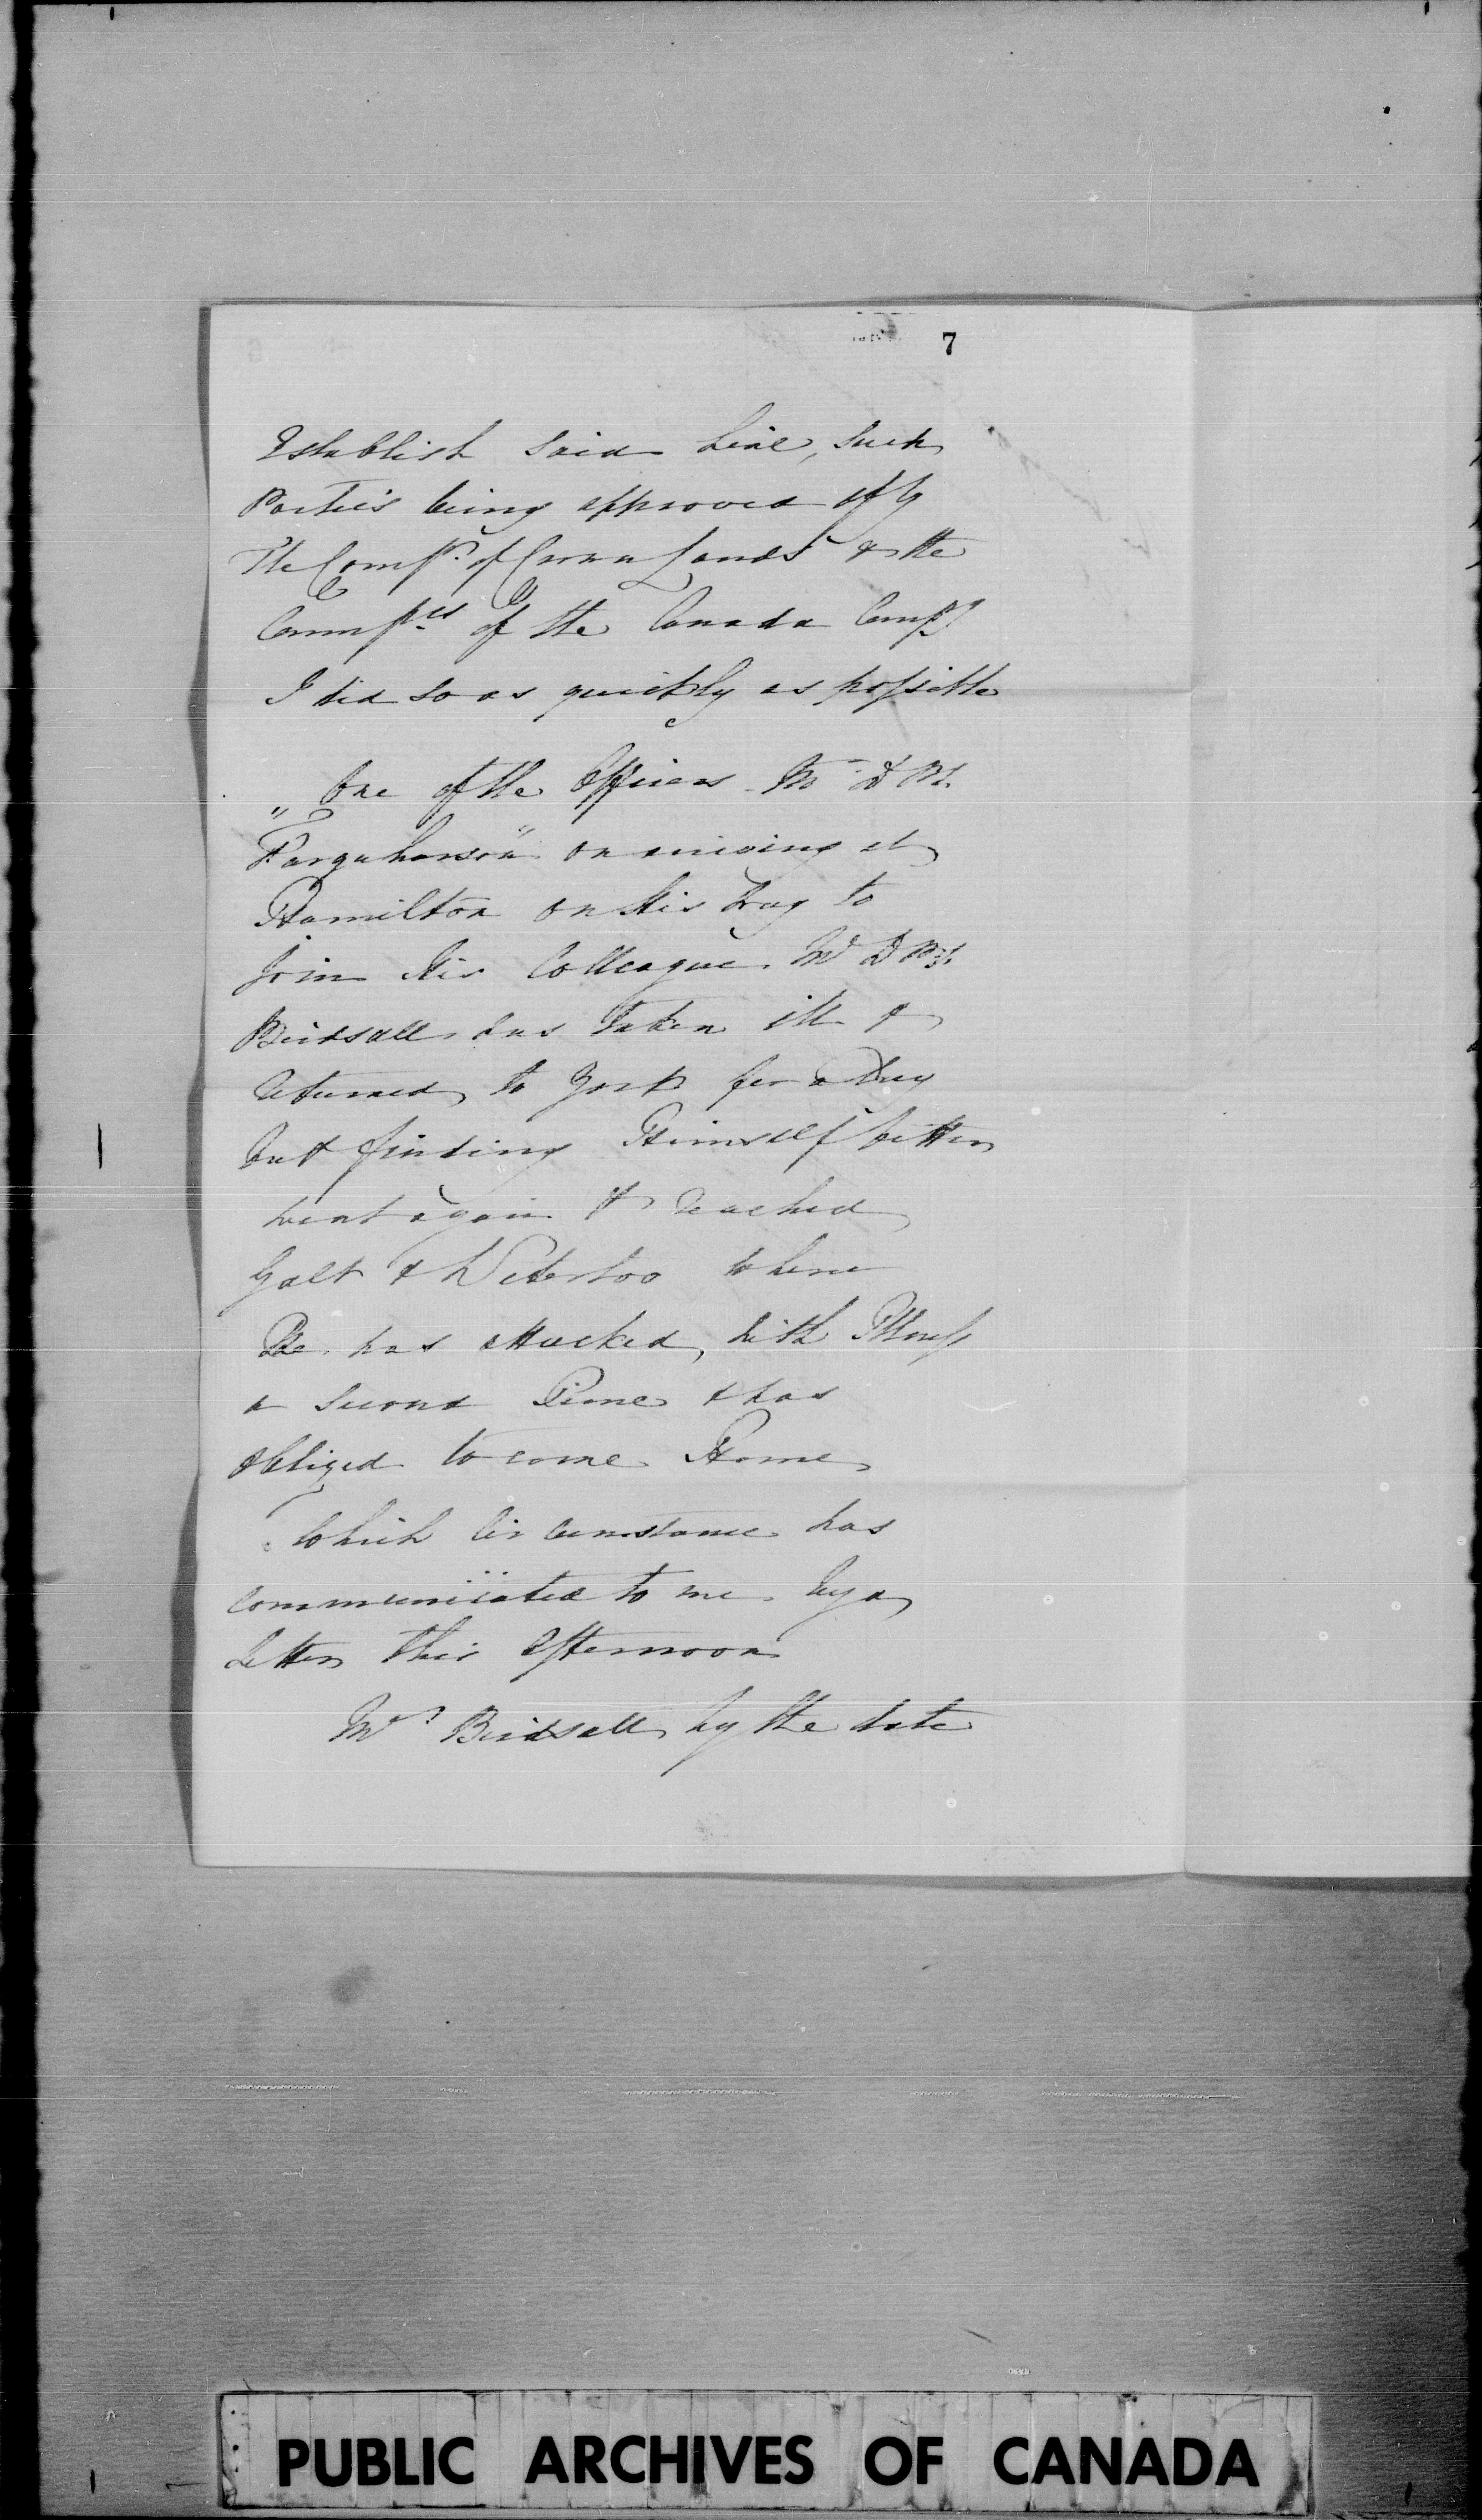 7
Establish said Line, Such
Parties being approved of by
The Commr. of Crown Lands & the
Commrs of the Canada Compy
I did so as quickly as possible
"One of the Officers Mr D Ml.
Farquharson" on arriving at
Hamilton on His way to
Join His Colleague Mr D Ml.
Birdsall was taken ill &
returned to York for a Day
but finding Himself better
went again & reached
Galt & Waterloo where
He was attacked, with Illness
a Second Time & was
obliged to come Home
Which Circumstance was
communicated to me by a
Letter this Afternoon
Mr. Birdsall by the date
PUBLIC ARCHIVES OF CANADA